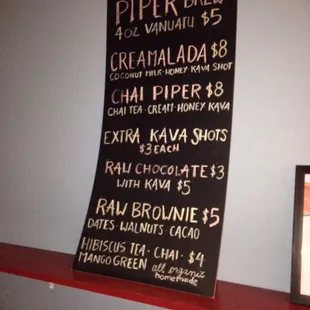 PIPER BREW
4OZ VANUATU $5
CREAMALADA $8
COCONUT MILK·HONEY·KAVA SHOT
CHAI PIPER $8
CHAI TEA·CREAM·HONEY KAVA
EXTRA KAVA SHOTS
$3 EACH
RAW CHOCOLATE $3
WITH KAVA $5
RAW BROWNIE $5
DATES·WALNUTS·CACAO
HIBISCUS TEA·CHAI·$4
MANGO GREEN all organic
homemade